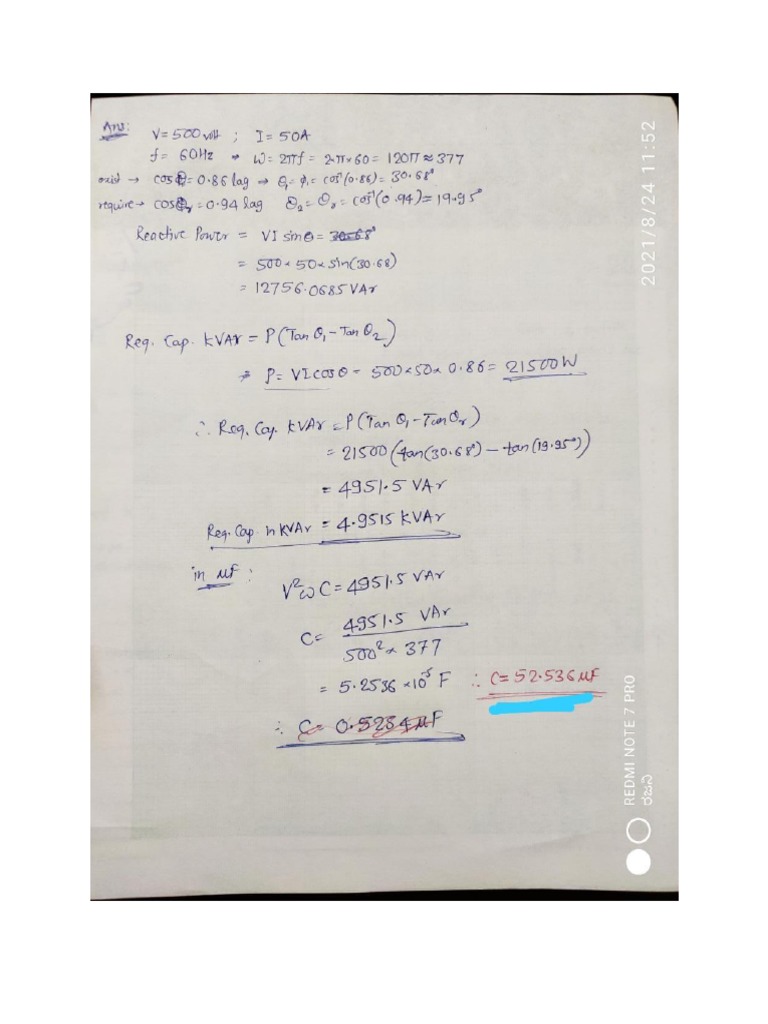 Ans:
V=500 volt ; I=50A
f= 60Hz → W=2πf= 2×π×60=120π≈377
exist → cosθ₁=0.86 lag → θ₁=φ₁=cos⁻¹(0.86)=30.68°
require→ cosθᵣ=0.94 lag θ₂=θᵣ=cos⁻¹(0.94)=19.95°
Reactive Power = VI sinθ = 30.68°
= 500×50×sin(30.68)
= 12756.0685 VAr
Req. Cap. KVAr = P(Tan θ₁-Tan θ₂)
→ P= VI cosθ = 500×50×0.86= 21500W
∴ Req. Cap. KVAr = P(Tan θ₁-Tan θᵣ)
= 21500(tan(30.68°)-tan(19.95°))
= 4951.5 VAr
Req. Cap. in KVAr = 4.9515 KVAr
in μF :
V²ωC=4951.5 VAr
C= 4951.5 VAr
500²×377
= 5.2536×10⁻⁵ F ∴ C=52.536 μF
∴ C= 0.5234 μF
2021/8/24 11:52
REDMI NOTE 7 PRO